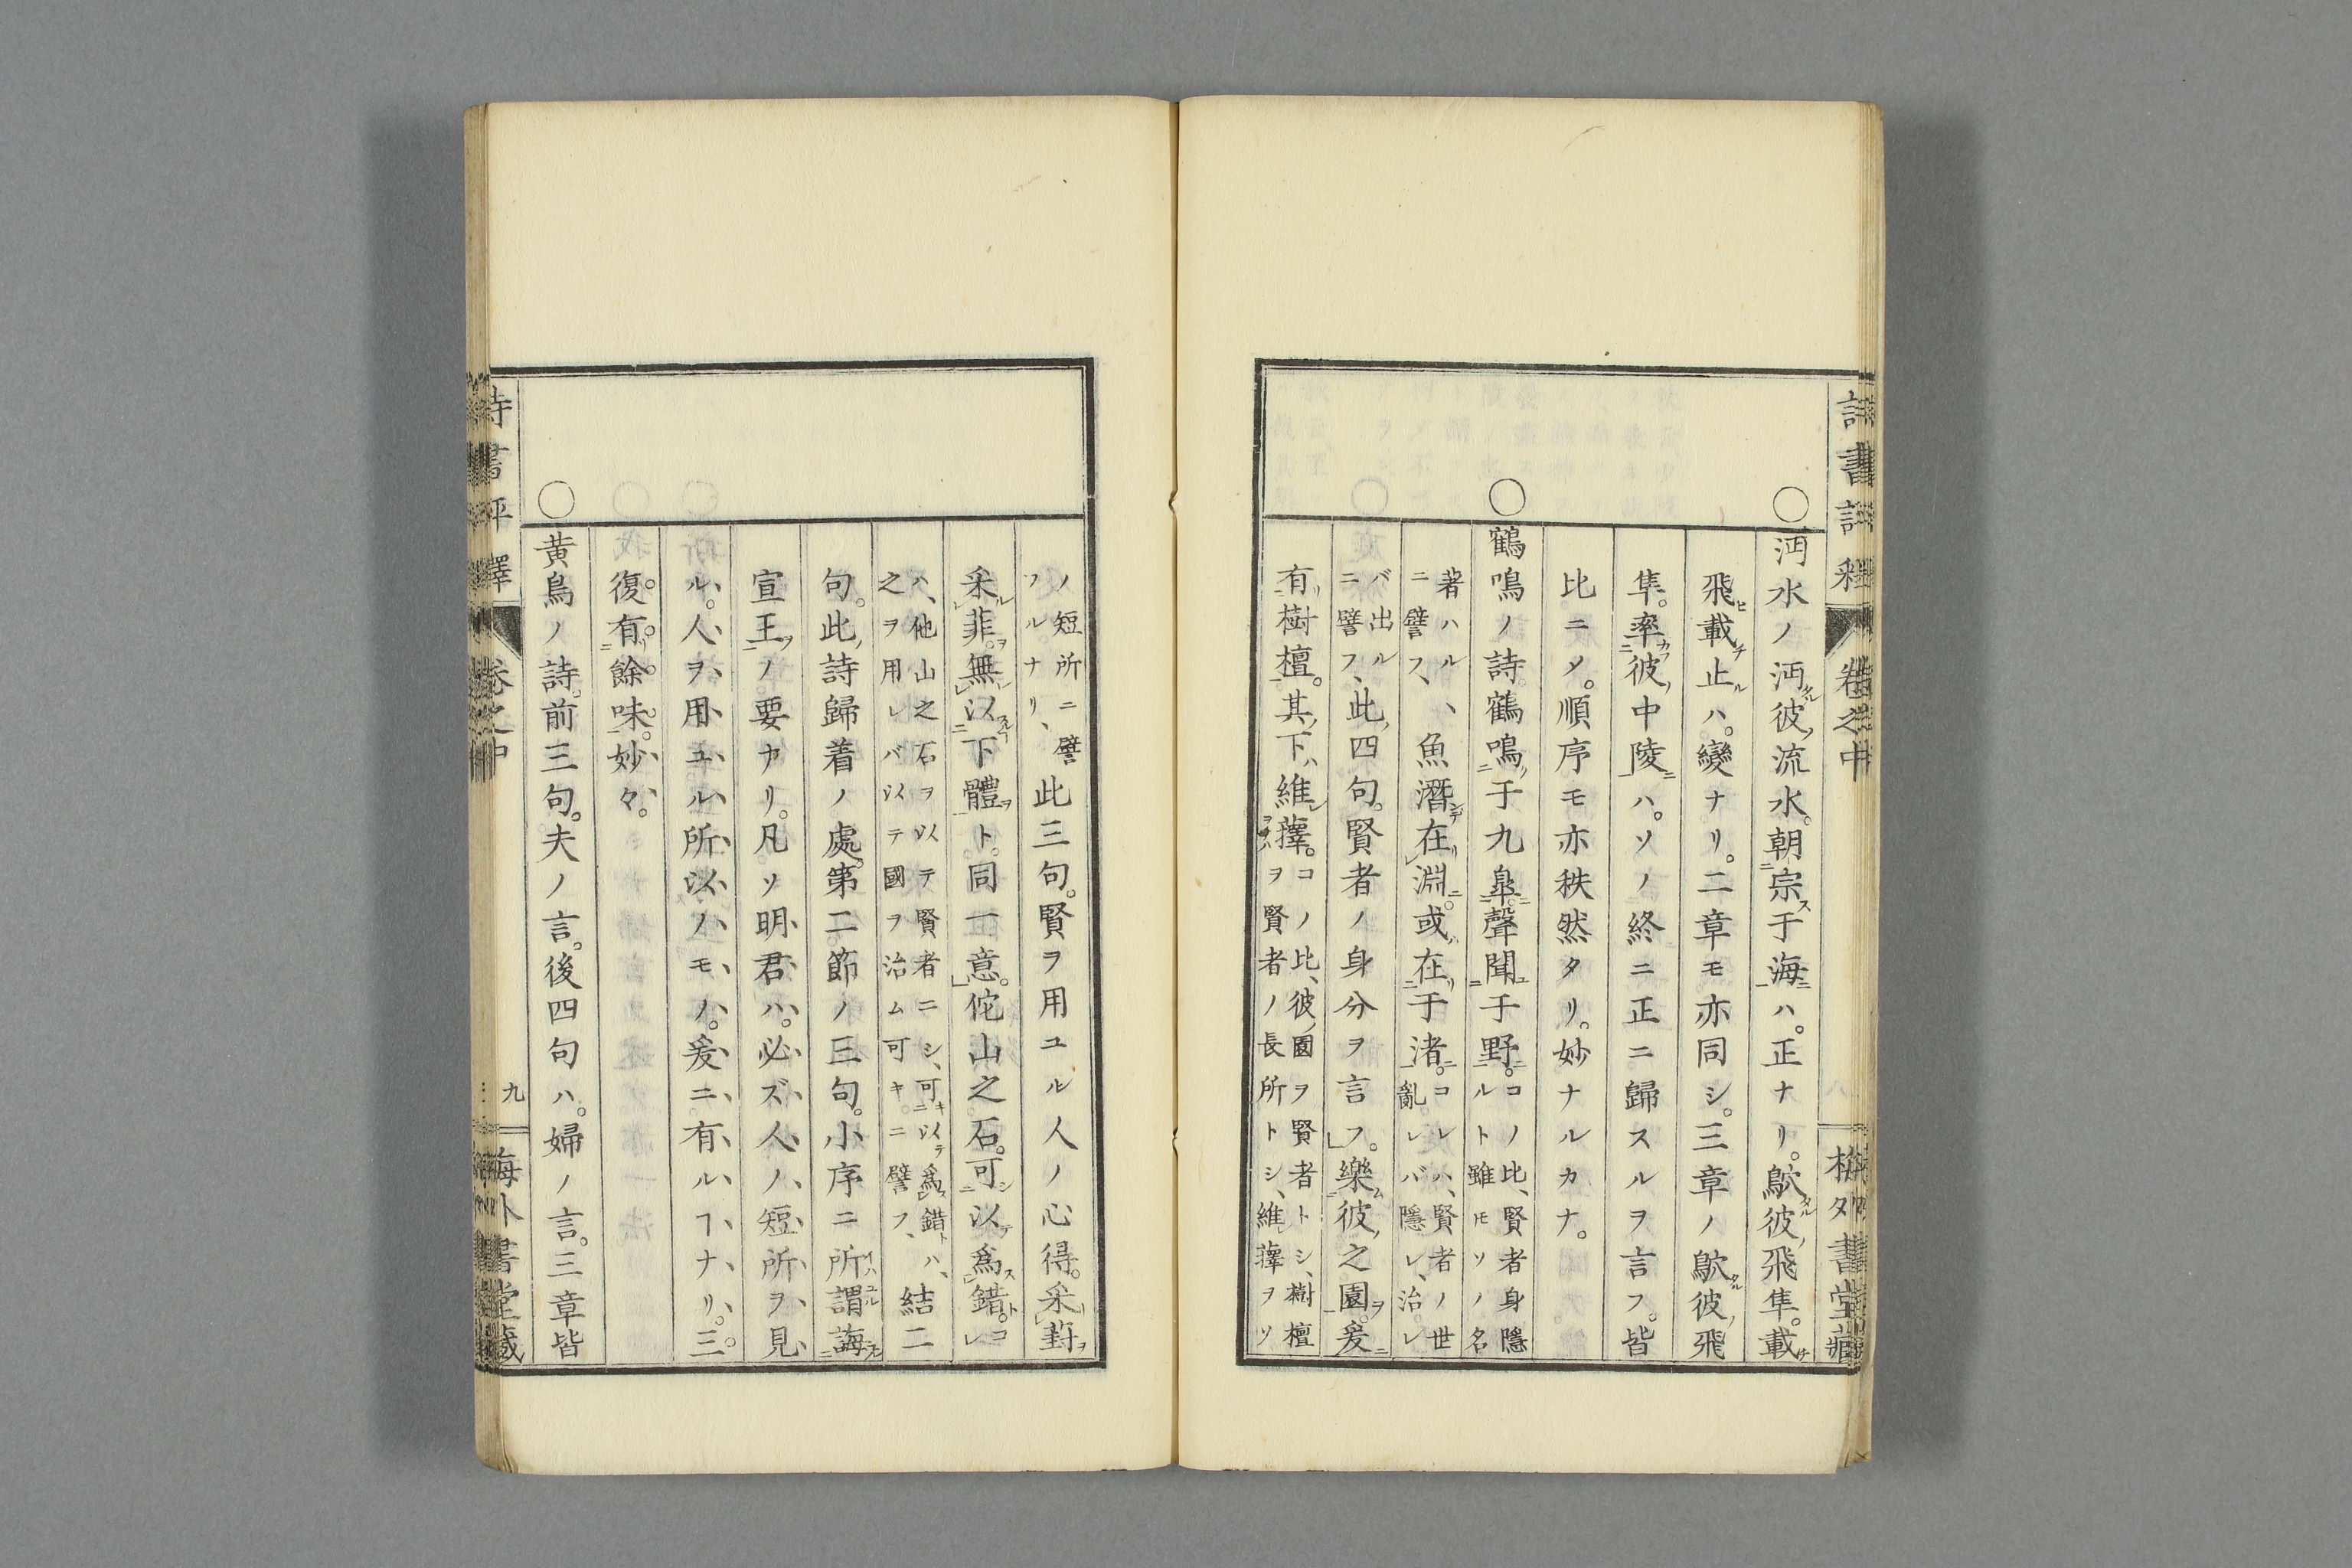 詩書評釋 卷之中 梅外書堂藏
○沔水ノ沔彼流水。朝宗于海ハ。正ナリ。鴥彼飛隼。載
飛載止ハ。變ナリ。二章モ亦同シ。三章ノ鴥彼飛
隼。率彼中陵ハ。ソノ終ニ正ニ歸スルヲ言フ。皆
比ニメ。順序モ亦秩然タリ。妙ナルカナ。
○鶴鳴ノ詩。鶴鳴于九皐。聲聞于野。コノ比、賢者身隱ルト雖𪜈ソノ名
著ハル、ニ譬フ、魚潛在淵。或在于渚。コレハ、賢者ノ世亂レバ隱レ、治レ
バ出ルニ譬フ、此四句。賢者ノ身分ヲ言フ。」樂彼之園。爰
有樹檀。其下維蘀。コノ比、彼園ヲ賢者トシ、樹檀ヲ賢者ノ長所トシ、維蘀ヲソ
ノ短所ニ譬フルナリ、此三句。賢ヲ用ユル人ノ心得。采葑
采菲。無以下體ト。同一意。」佗山之石。可以爲錯。コレ
ハ、他山之石ヲ以テ賢者ニシ、可以爲錯ハ、之ヲ用レバ以テ國ヲ治ム可キニ譬フ、結二
句。此詩歸着ノ處。第二節ノ三句。小序ニ所謂誨
宣王ノ要ナリ。凡ソ明君ハ。必ズ人ノ短所ヲ見
ル。人ヲ用ユル所以ノモノ。爰ニ有ルヿナリ。三
復有餘味。妙々。
○黄鳥ノ詩。前三句。夫ノ言。後四句ハ。婦ノ言。三章皆
詩書評釋 卷之中 九 梅外書堂藏